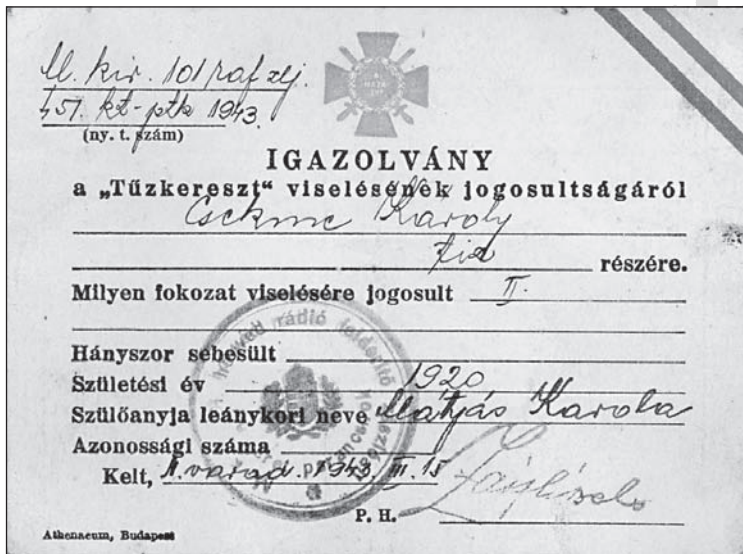 M. kir. 101 raf zlj.
451. kt-ptk 1943.
(ny. t. szám)
IGAZOLVÁNY
a „Tűzkereszt“ viselésének jogosultságáról
Károly
részére.
Milyen fokozat viselésére jogosult II.
Hányszor sebesült
Születési év 1920
Szülőanyja leánykori neve Mátjás Karola
Azonossági száma
Kelt, N.várad. 1943. III. 15
P. H.
Athenaeum, Budapest
honvéd rádió felderítő